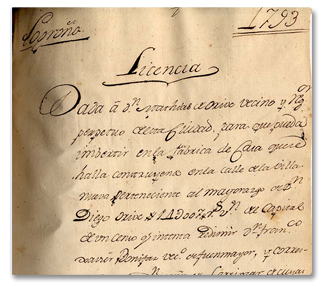 Logroño
1793
Licencia
Dada á Dn Mathias de Orive vecino y Rgr
perpetuo de esta Ciudad, para que pueda
imbertir en la fabrica de Casa que se
halla construyendo en la calle de la Villa
nueva perteneciente al mayorazgo de Dn
Diego Orive 14 Rs vn de Capital
de un censo q intenta redimir Dn Franco
Xavier vecº de fuenmayor, y corres-